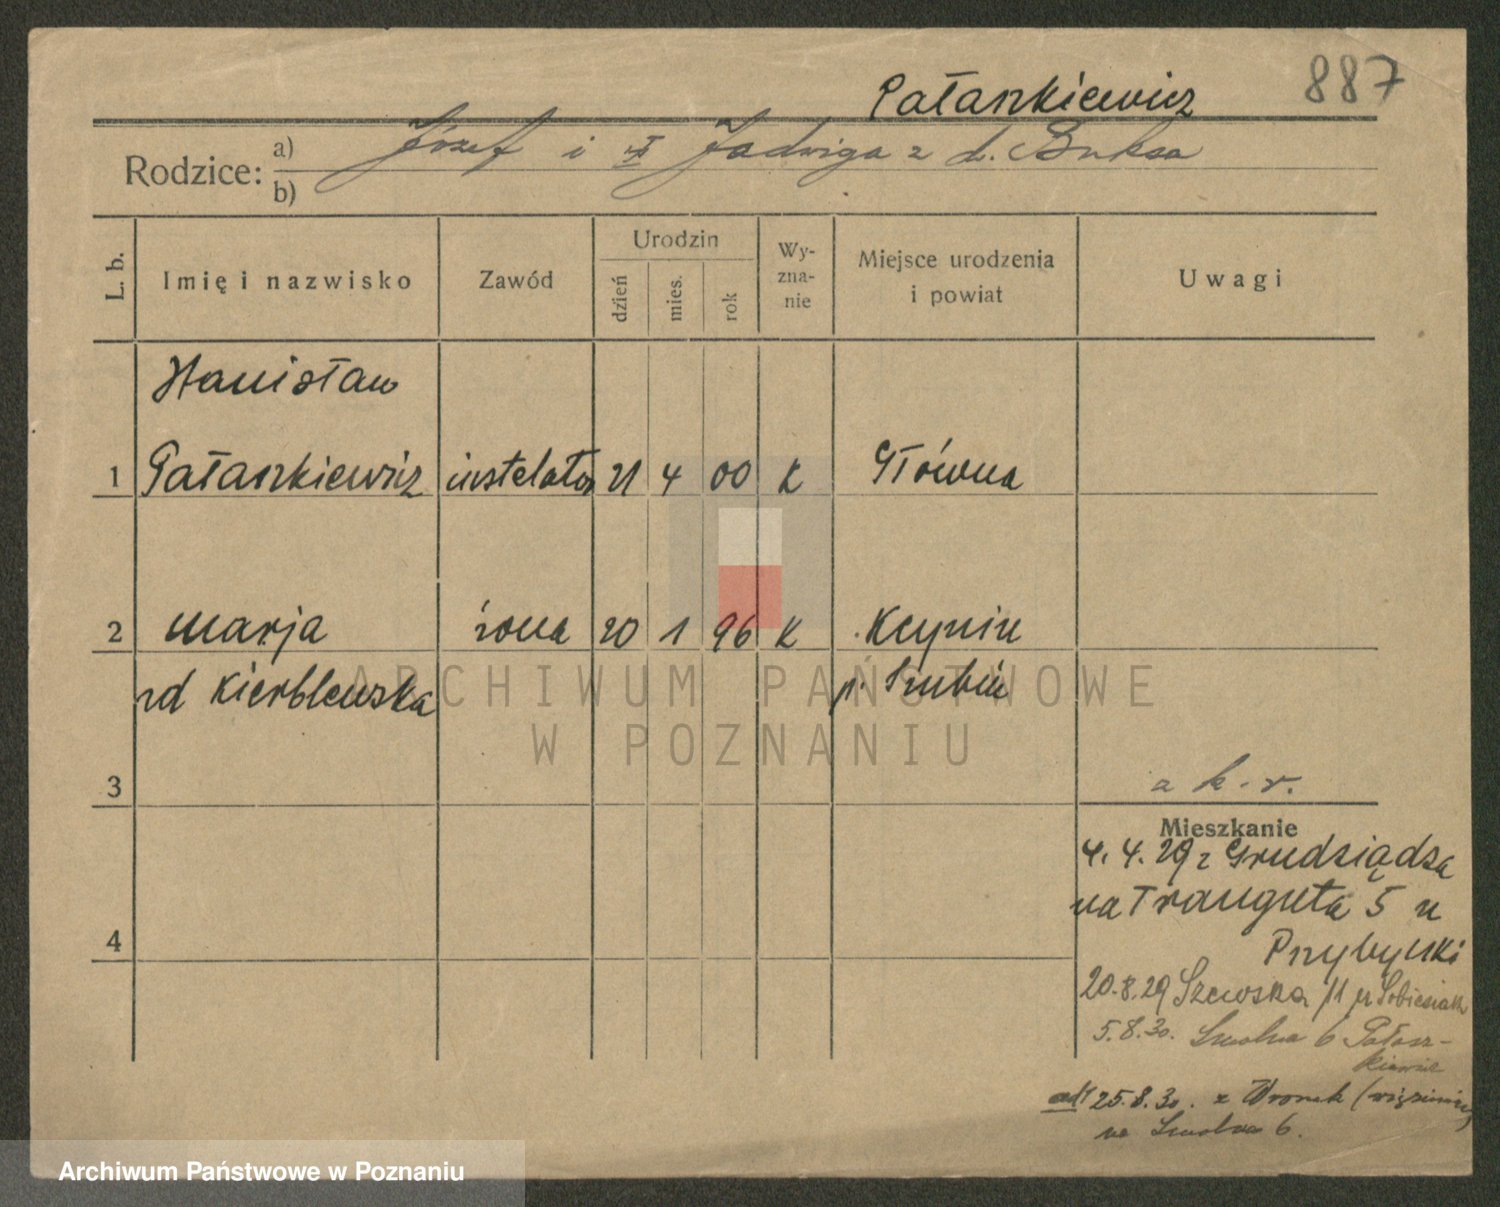 Pałaszkiewicz
887
Rodzice:
a) Józef i Jadwiga z d. Buksa
b)
L. b.
Imię i nazwisko
Zawód
Urodzin
dzień
mies.
rok
Wy-
zna-
nie
Miejsce urodzenia
i powiat
Uwagi
Stanisław
1 Pałaszkiewicz instelator 21 4 00 K Główna
2 Marja żona 20 1 96 K Kcynin
zd Kierblewska p. Szubin
3
a k. r.
Mieszkanie
4. 4. 29 z Grudziądza
na Trauguta 5 u
Przybylski
4
20.8.29 Szewska 11 u Sobiesiak
5.8.30. Smolna 6 Pałasz-
kiewicz
ad1 25.8.30. z Wronek (więzienie)
na Smolna 6.
ARCHIWUM PAŃSTWOWE
W POZNANIU
Archiwum Państwowe w Poznaniu